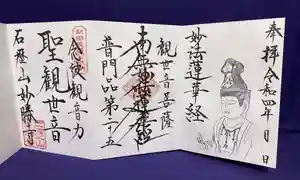 奉拝 令和四年 月 日
妙法蓮華経
観世音菩薩
普門品第二十五
南無妙法蓮華経
念彼観音力
聖観世音
石歴山妙勝寺